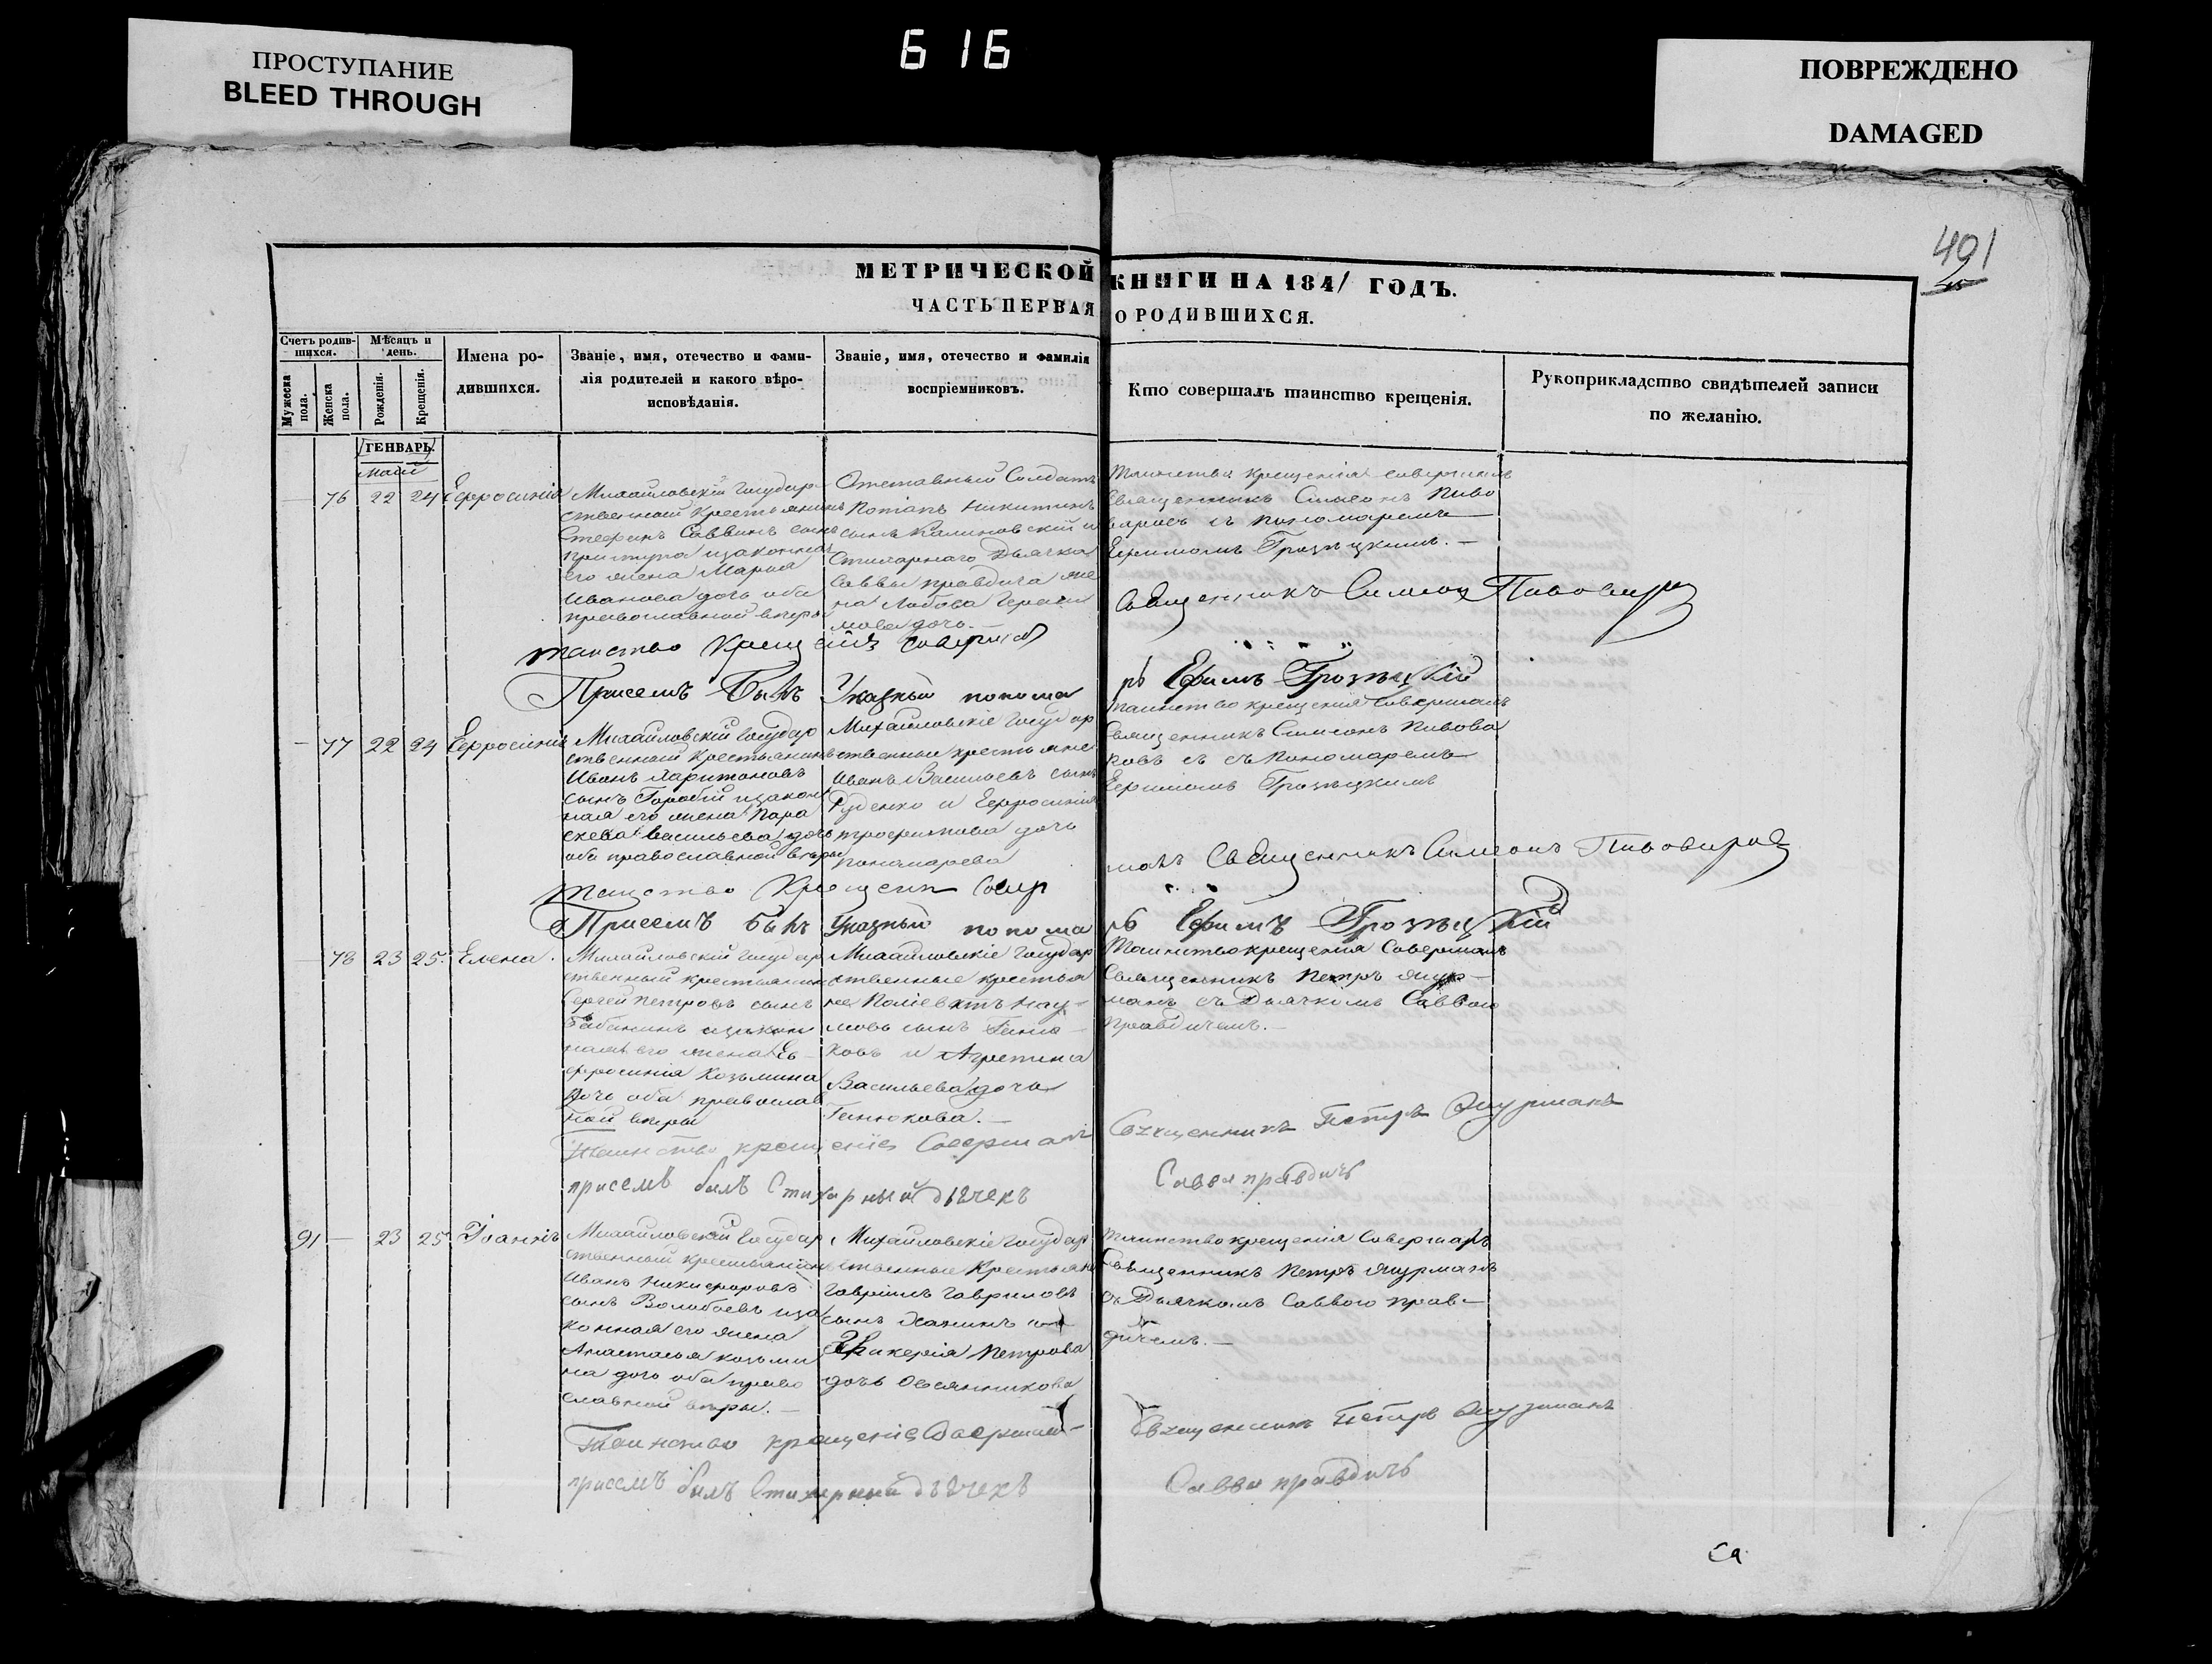 ПРОСТУПАНИЕ
BLEED THROUGH
616
ПОВРЕЖДЕНО
DAMAGED
401
МЕТРИЧЕСКОЙ КНИГИ НА 1841 ГОДЪ.
ЧАСТЬ ПЕРВАЯ О РОДИВШИХСЯ.
Счетъ родив-
шихся.
Мужеска пола.
Женска пола.
Мѣсяцъ и день.
Рожденія.
Крещенія.
Имена ро-
дившихся.
Званіе, имя, отечество и фами-
лія родителей и какого вѣро-
исповѣданія.
Званіе, имя, отечество и фамилія
воспріемниковъ.
Кто совершалъ таинство крещенія.
Рукоприкладство свидѣтелей записи
по желанію.
ГЕНВАРЬ.
маій
76 22 24 Ефросинія
Михайловскій государ
ственный крестьянинъ
Стефанъ Саввинъ сынъ
изаконная
его жена Марія
Иванова дочь оба
православной вѣры
Отставный Солдатъ
Потапъ Никитинъ
сынъ Калиновскій и
Стихарнаго Дьячка
Саввы Правдича же
на Любовь Гераси
мова дочь.
Таинство крещенія совершилъ
Священникъ Симеонъ Пиво
варовъ съ пономаремъ
Ефимомъ Грозецкимъ.
Священникъ Симеонъ Пивоваровъ
таиство Крещенія соверша
Присемъ Былъ Указный понома
рь Ефимъ Грозецкій
77 22 24 Ефросинія
Михайловскій государ
ственный крестьянинъ
Иванъ Харитоновъ
сынъ Горобій изакон
ная его жена Пара
скева Васильева дочь
оба православной вѣры
Михайловскіе государ
ственные крестьяне
Иванъ Васильевъ сынъ
Руденко и Ефросинія
трофимова дочь
пономарева
таинство крещенія совершалъ
Священникъ Симеонъ Пивова
ровъ съ съ Пономаремъ
Ефимомъ Грозецкимъ
таиство Крещения Совер
шалъ Священникъ Симеонъ Пивоваровъ
Присемъ былъ Указный понома
рь Ефимъ Грозецкій
78 23 25. Елена.
Михайловскій государ
ственный крестьянинъ
Сергей Петровъ сынъ
Бабанинъ изакон
ная его жена Ев
фросинія Козьмина
дочь оба православ
ной вѣры
Михайловскіе государ
ственные крестья
не Поліевктъ Нау-
мовъ сынъ Геню-
ковъ и Агрепина
Васильева дочь
Генюкова.
Таинство крещенія Совершалъ
Священникъ Петръ Яцур-
макъ съ Дьячкомъ Саввою
Правдичемъ.
Таинство крещеніе Совершалъ
Священникъ Петръ Яцурмакъ
присемъ былъ Стихарный дьячекъ
Савва правдичъ
91 23 25 Іоаннъ
Михайловскій государ
ственный крестьянинъ
Иванъ Никифоровъ
сынъ Волобоевъ иза
конная его жена
Анастасья козьми
на дочь оба право
славной вѣры.
Михайловскіе государ
ственные крестьяне
Гавріилъ Гавриловъ
сынъ Жанинъ и
Гликерія Петрова
дочь Овсянникова
Таинство крещенія Совершалъ
Священникъ Петръ Яцурмакъ
съ Дьячкомъ Саввою прав-
дичемъ.
Таинство крещеніе Совершал-
Священникъ Петръ Яцурмакъ
присемъ былъ Стихарный дьячекъ
Савва правдичъ